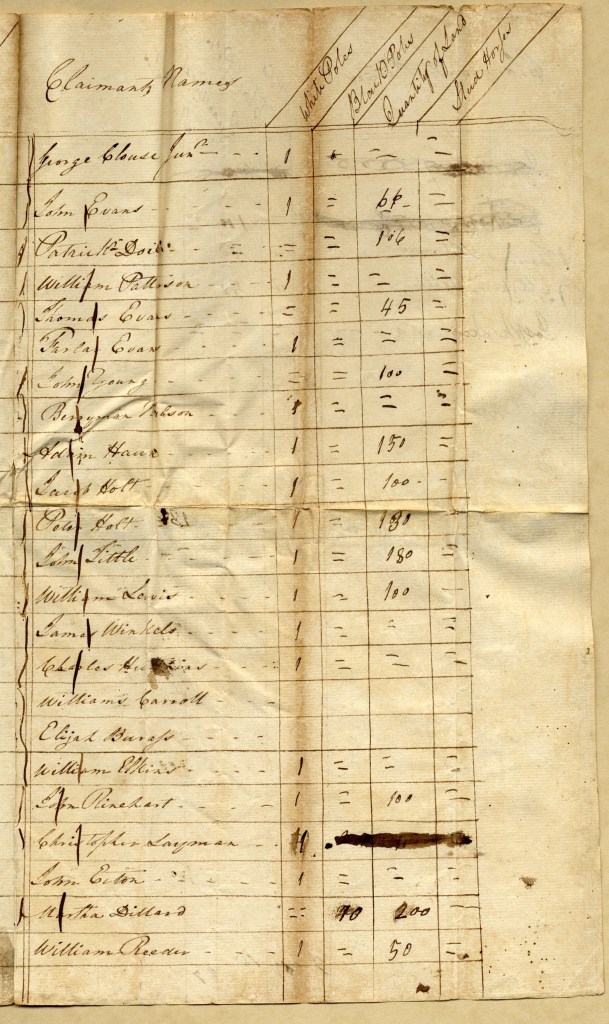 Claimants Names White Poles Black Poles Quantity of Land Stud Horses
George Clouse Junr - - - 1 = = =
John Evans - - - 1 = =
Patrick Doil - - = = = 106 =
William Pattison 1 = = =
Thomas Evans - - = = 45 =
Evans - - - 1 = = =
John Young - - - = = 100 =
Berryman - - 1 = = =
Adam Hawn - - - 1 = 150 =
Jacob Holt - - - 1 = 100 -
Peter Holt - - - 1 = 180 =
John Little - - - 1 = 180 =
William Lewis - - - 1 = 100 =
James Winkels - - - 1 = = =
Charles - - - 1 = = =
Williams Carroll - -
Elijah Burass - - -
William Elkins - - 1 = = =
John Rinehart - - - 1 = 100 =
Christopher Layman - 1
John Ecton - - - 1 = = =
Martha Dillard = 200 =
William Reeder - - 1 = 50 =